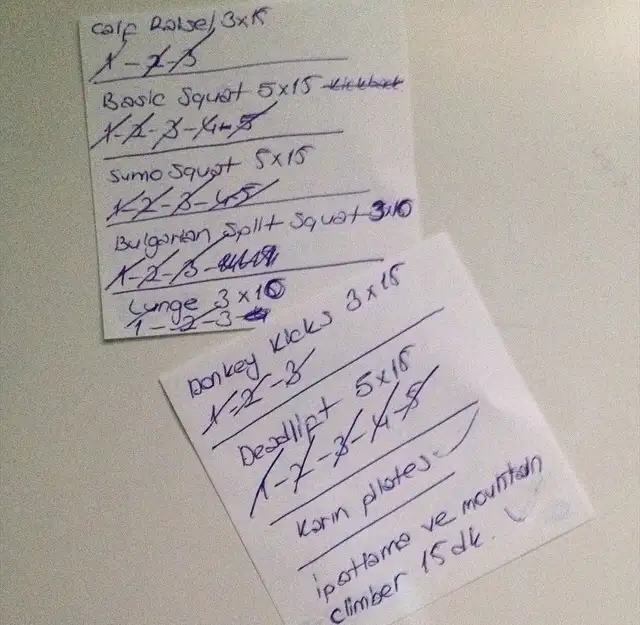 calf Raise 3x15
1-2-3
Basic Squat 5x15
1-2-3-4-5
Sumo Squat 5x15
1-2-3-4-5
Bulgarian Split Squat 3x10
1-2-3-
Lunge 3x10
1-2-3-
Donkey Kicks 3x15
1-2-3
Deadlipt 5x15
1-2-3-4-5
Karın pilates
ip atlama ve mountain
climber 15 dk.